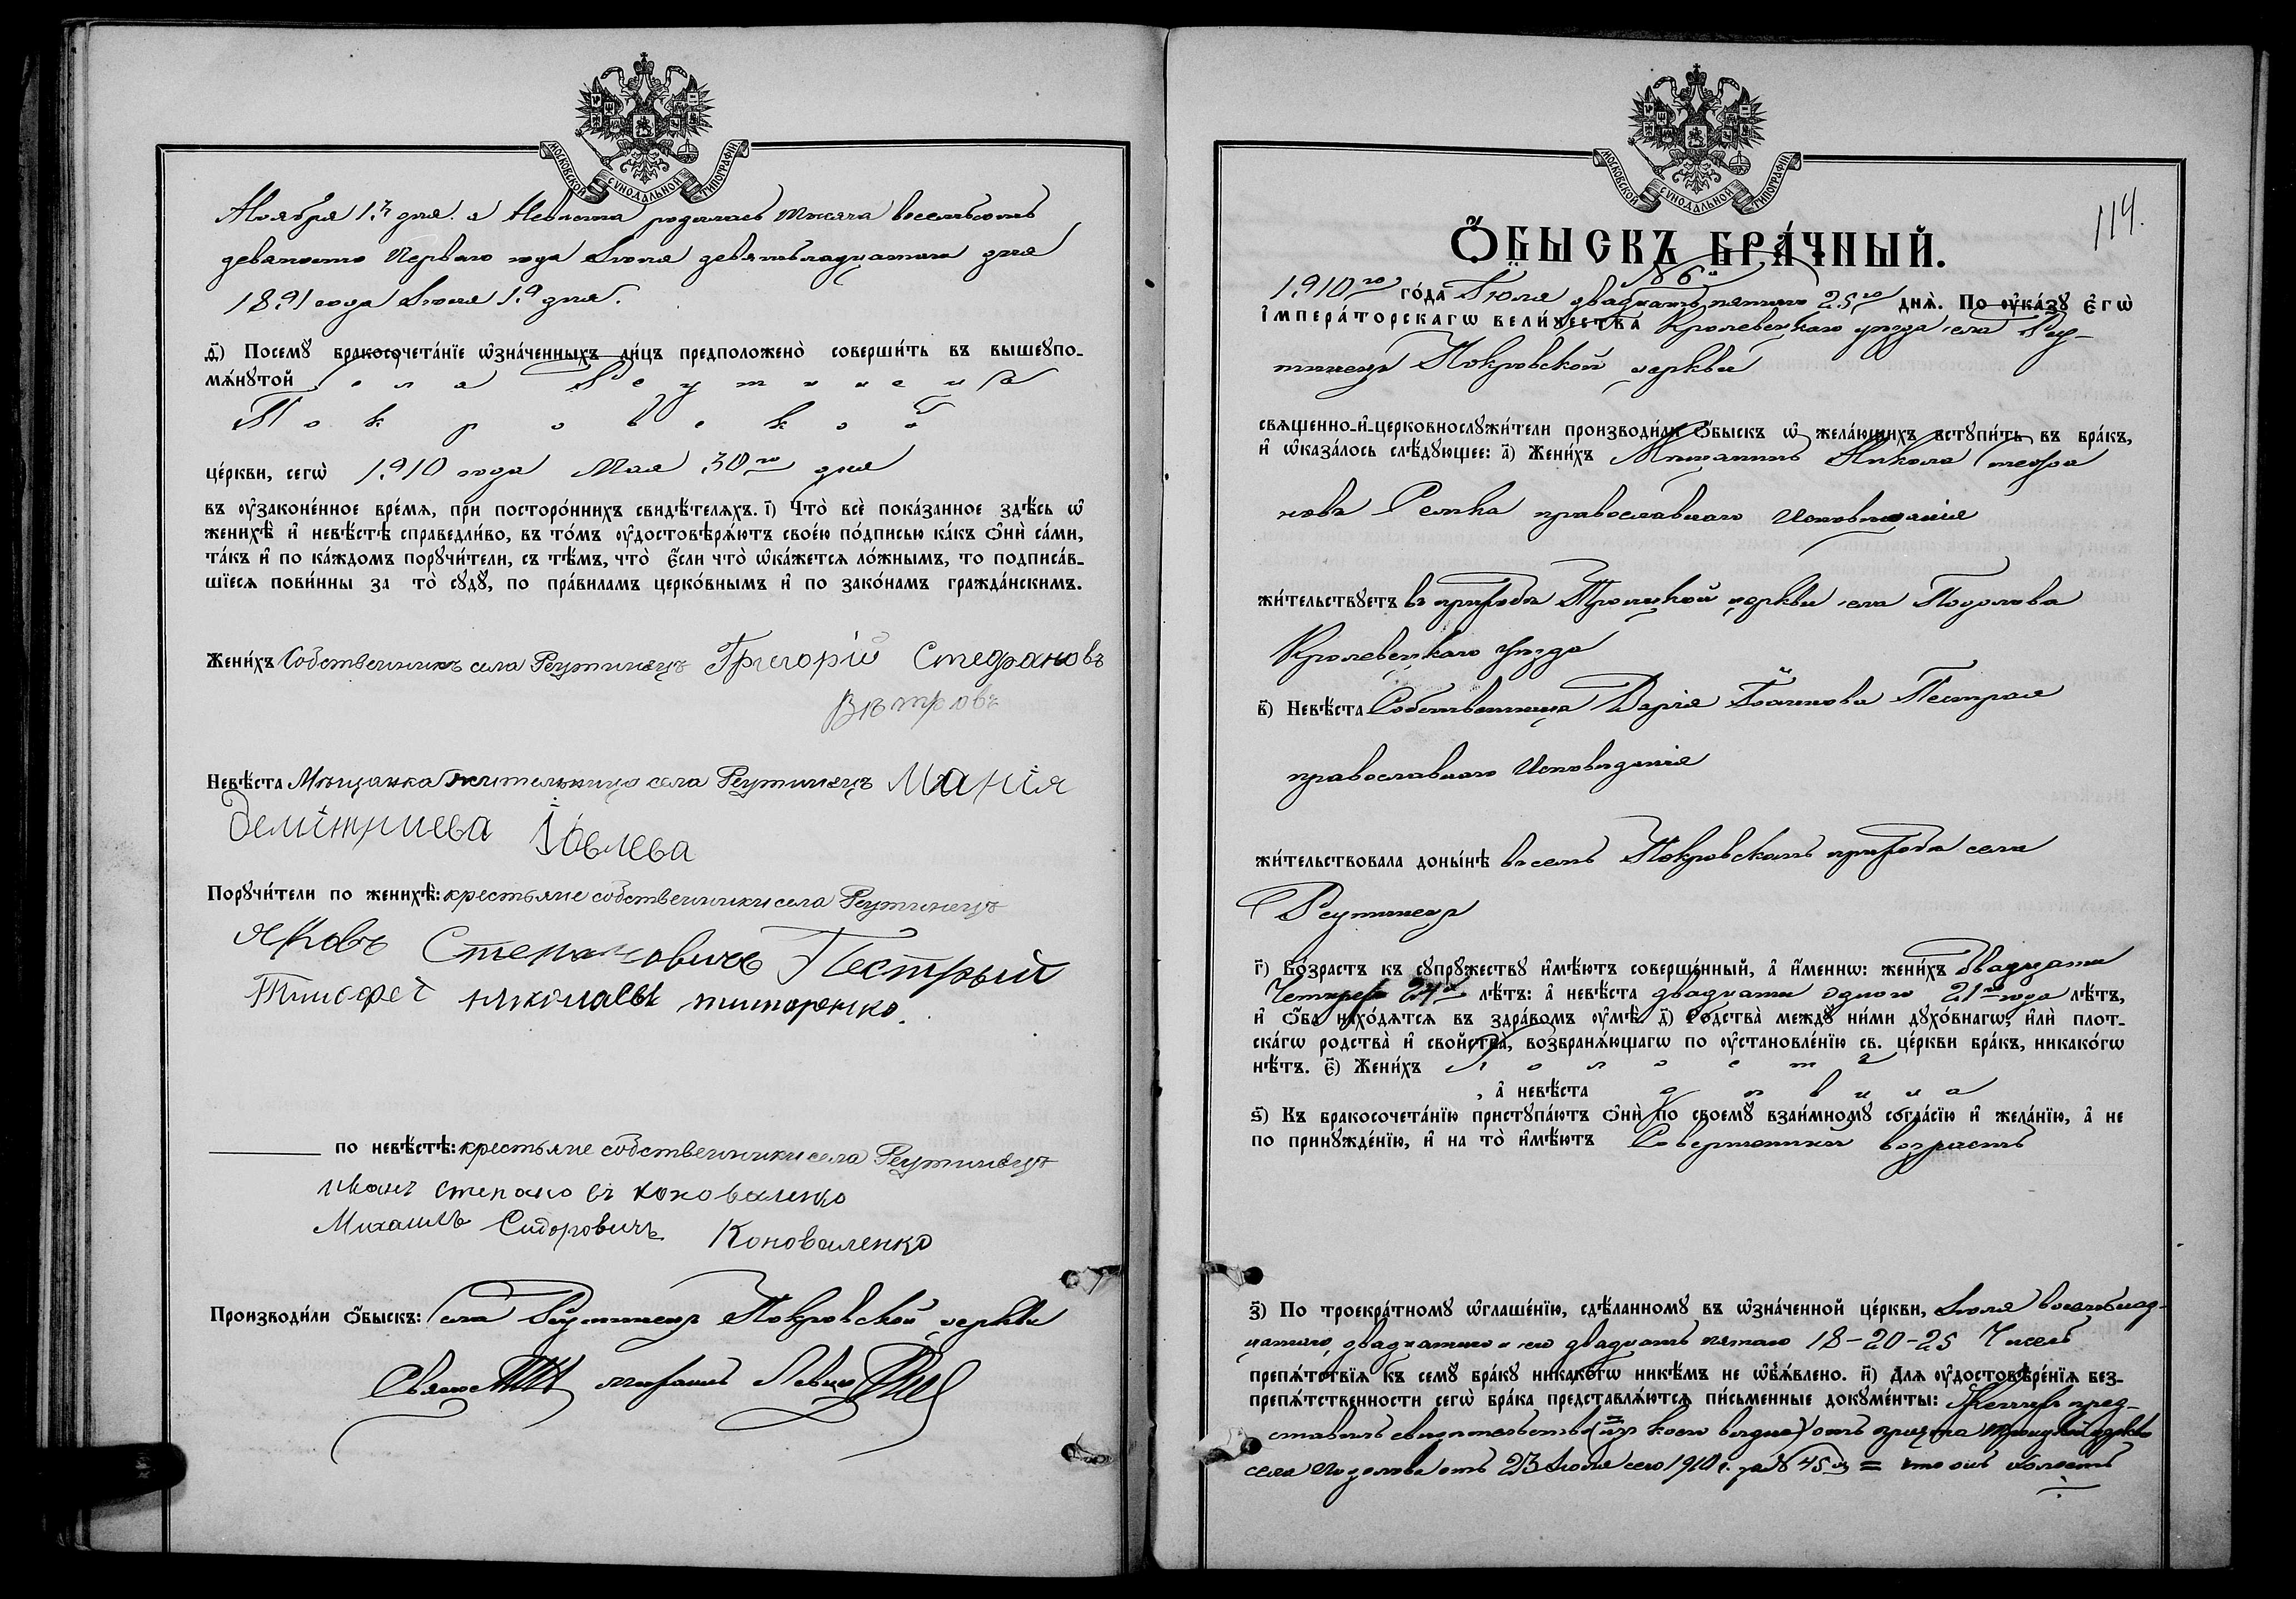 МОСКОВСКОЙ СѴНОДАЛЬНОЙ ТИПОГРАФІИ
Ноября 13 дня. а Невеста родилась тысяча восемьсотъ
девяносто Перваго года Іюля девятнадцатаго дня
1891 года Іюля 19 дня.
д҃) Посемꙋ бракосочета́нїе ѡ҆зна́ченныхъ ли́цъ предположено̀ соверши́ть въ вышеꙋпо-
мѧ́нꙋтой села Реутинецъ
Покровской
це́ркви, сегѡ̀ 1910 года Мая 30го дня
въ ᲂу҆законе́нное вре́мѧ, при посторо́ннихъ свидѣ́телѧхъ. і҃) Что̀ всѐ пока́занное здѣ́сь ѡ҆
женихѣ̀ и҆ невѣ́стѣ справедли́во, въ то́мъ ᲂу҆достовѣрѧ́ютъ свое́ю по́дписью ка́къ ѻ҆нѝ са́ми,
та́къ и҆ по ка́ждомъ порꙋчи́тели, съ тѣ́мъ, что̀ є҆́сли что̀ ѡ҆ка́жетсѧ ло́жнымъ, то подписа́в-
шїесѧ пови́нны за то̀ сꙋдꙋ̀, по пра́виламъ церко́внымъ и҆ по зако́намъ гражда́нскимъ.
Жени́хъ Собственникъ села Реутинецъ Григорій Стефановъ
Вѣтровъ
Невѣ́ста Мѣщанка жительница села Реутинецъ Марія
Демітриева Іовлева
Порꙋчи́тели по женихѣ̀: крестьяне собственники села Реутинецъ
Яковъ Степановичъ Пестрый
Тимофей николаевъ титаренко.
по невѣ́стѣ: крестьяне собственники села Реутинецъ
иванъ степановъ коноваленко
Михаилъ Сидоровичъ Коноваленко
Производи́ли ѻ҆́быскъ: Села Реутинецъ Покровской церкви
МОСКОВСКОЙ СѴНОДАЛЬНОЙ ТИПОГРАФІИ
114.
Ѻ҆́БЫСКЪ БРА́ЧНЫЙ.
№ 6й
1910го го́да Іюля двадцать пятаго 25го днѧ̀. По ᲂу҆ка́зꙋ є҆гѡ̀
і҆мпера́торскагѡ вели́чества Кролевецкаго уѣзда села Реу-
тинецъ Покровской церкви
свѧще́нно-и҆-церковнослꙋжи́тели производи́ли ѻ҆́быскъ ѡ҆ жела́ющихъ встꙋпи́ть въ бра́къ,
и҆ ѡ҆каза́лось слѣ́дꙋющее: а҃) Жени́хъ Мѣщанинъ Никола Стефа
новъ православнаго Исповѣданія
жи́тельствꙋетъ въ приходѣ Троицкой церкви села Подолова
Кролевецкаго уѣзда
в҃) Невѣ́ста Собственница Дарія Пестрая
православнаго Исповѣданія
жи́тельствовала доны́нѣ въ семъ Покровскомъ приходѣ села
Реутинецъ
г҃) Во́зрастъ къ сꙋпрꙋ́жествꙋ и҆мѣ́ютъ соверше́нный, а҆ и҆́меннѡ: жени́хъ двадцати
Четырехъ 24х лѣ́тъ: а҆ невѣ́ста двадцати одного 21го года лѣ́тъ,
и҆ ѻ҆́ба нахо́дѧтсѧ въ здра́вомъ ᲂу҆мѣ̀. д҃) Родства̀ междꙋ̀ ни́ми дꙋхо́внагѡ, и҆лѝ плот-
ска́гѡ родства̀ и҆ свойства̀, возбранѧ́ющагѡ по ᲂу҆становле́нїю св. це́ркви бра́къ, никако́гѡ
нѣ́тъ. є҃) Жени́хъ холостъ
, а҆ невѣ́ста дѣвица
ѕ҃) Къ бракосочета́нїю пристꙋпа́ютъ ѻ҆нѝ по своемꙋ̀ взаи́мномꙋ согла́сїю и҆ жела́нїю, а҆ не
по принꙋжде́нїю, и҆ на то̀ и҆мѣ́ютъ Совершенный возрастъ
з҃) По троекра́тномꙋ ѡ҆глаше́нїю, сдѣ́ланномꙋ въ ѡ҆зна́ченной це́ркви, Іюля восемнад-
цатаго, двадцатаго и двадцать пятаго 18-20-25 Чиселъ
препѧ́тствїѧ къ семꙋ̀ бра́кꙋ никако́гѡ никѣ́мъ не ѡ҆б̾ѧ́влено. и҃) Длѧ ᲂу҆достовѣре́нїѧ без-
препѧ́тственности сегѡ̀ бра́ка представлѧ́ютсѧ пи́сьменные докꙋме́нты: Женихъ пред-
ставилъ свидѣтельство (изъ коего видно) отъ причта Троицкой церкви
села Подолова отъ 23 Іюля сего 1910 г. за № 45 = что онъ холостъ